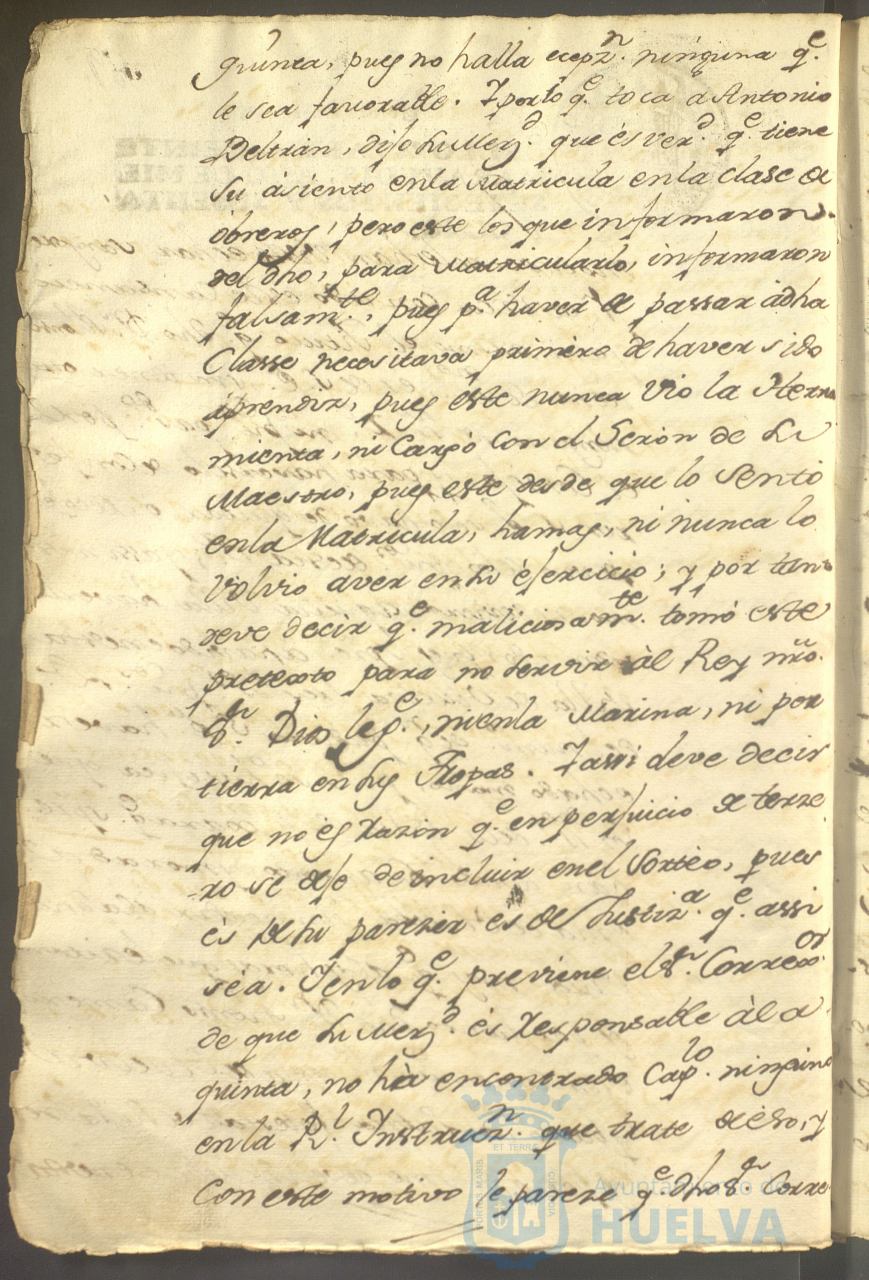 quinta, pues no halla ecepzn. ninguna qe.
le sea favorable. Y por lo qe. toca a Antonio
Beltrán, dijo su Merd. que és verd. qe. tiene
su ásiento en la Matricula en la clase de
óbreros, pero este los que informaron
del dho, para Matricularlo, informaron
falsamte., pues pa. haver de passar ádha
Classe necesitava primero de haver sido
áprendiz, pues éste nunca vio la Herra
mienta, ni Cargó con el Serón de su
Maestro, pues este desde que lo Sentó
en la Matricula, hamas, ni nunca lo
volvio aver en su éjercicio; y por tanto
deve decir qe. maliciosamte. tomó este
pretexto para no servir ál Rey nro.
Sr. Dios le ge., ni en la Marina, ni por
tierra en sus Tropas. Y assi deve decir
que no és Razón qe. en perjuicio de terze
ro se deje de incluir en el Sortéo, pues
és de su parezer es de Justiza. qe. assi
séa. Y en lo qe. previene el Sr. Corredor.
de que su Merd. és Responsable ál a
quinta, no hà encontrado Caplo. ninguno
en la Rl. Instrucn. que trate de éso, y
Con este motivo le pareze qe. dho Sr. Corre
Ayuntamiento de
HUELVA
ET TERRE
PORTUS MARIS